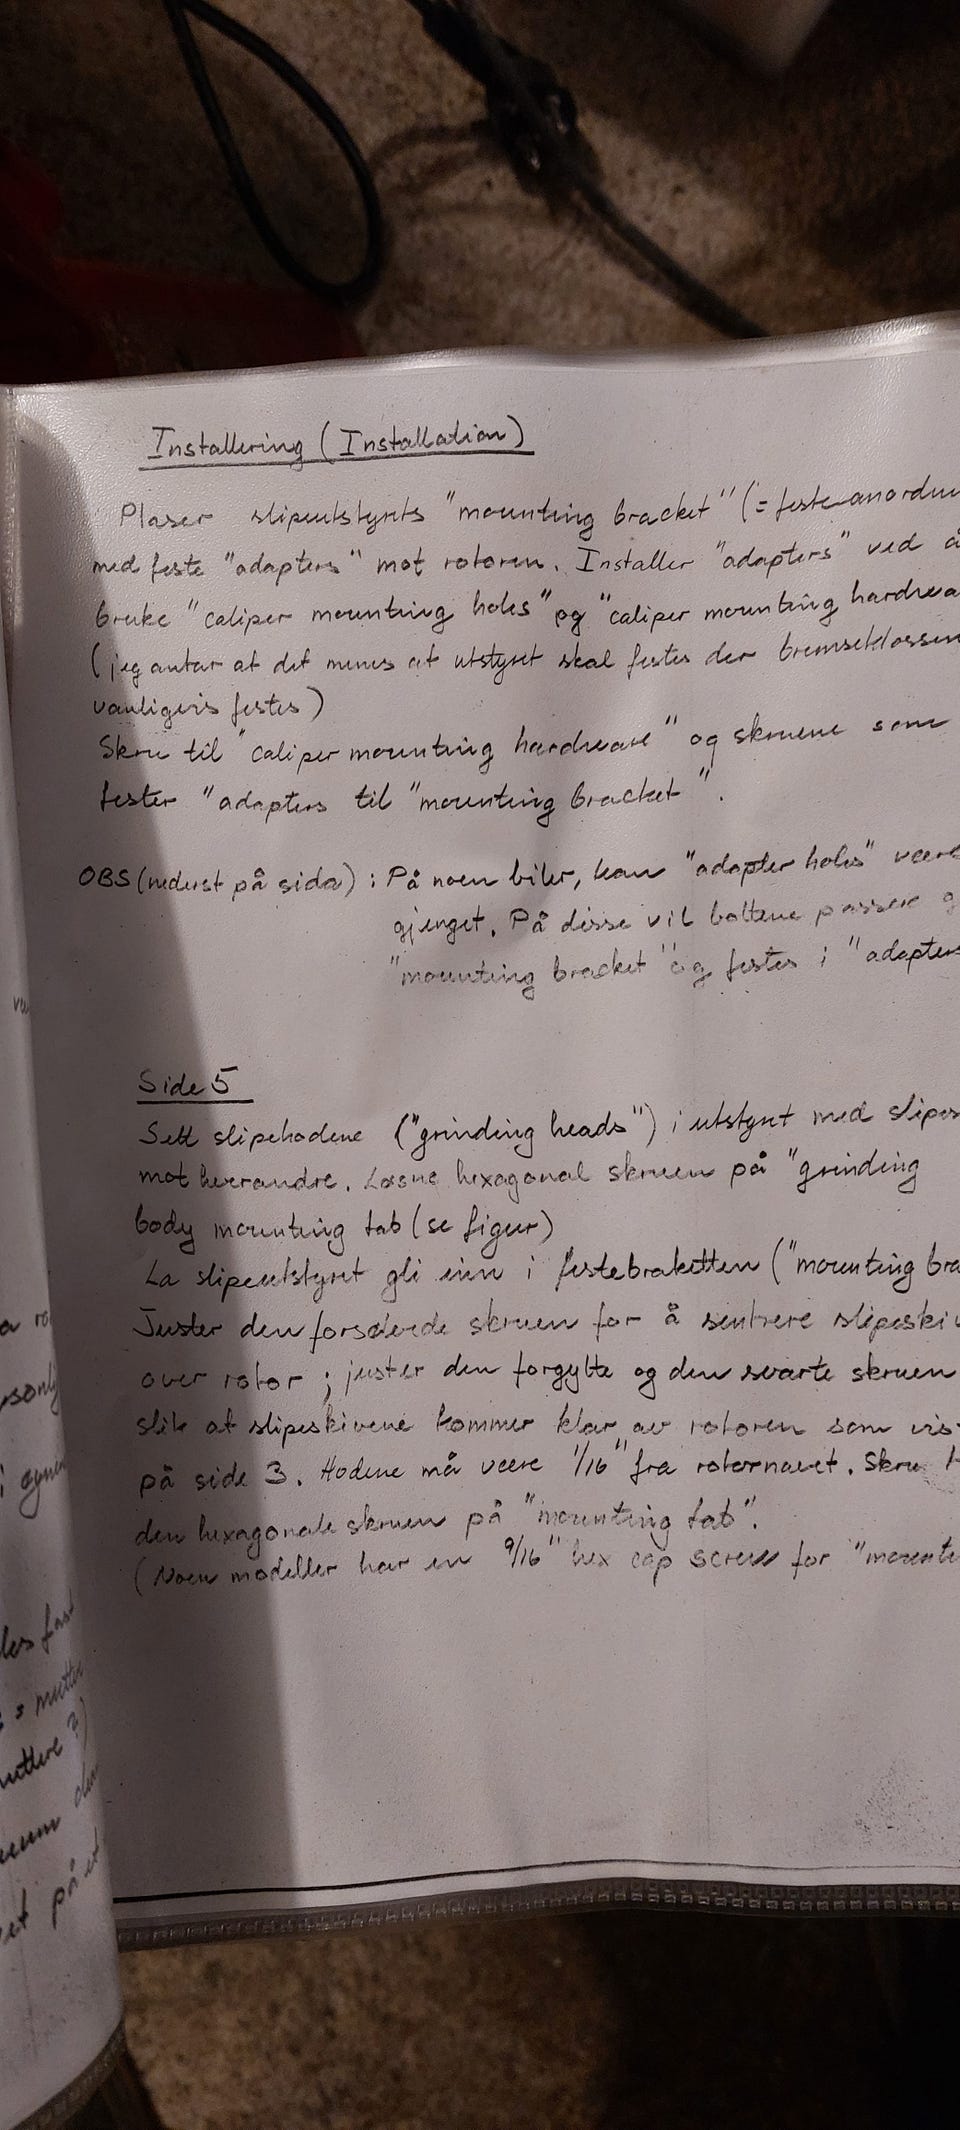 Installering (Installation)
Plaser slipeutstyrets "mounting bracket" (= feste-anordn
med feste "adapters" mot rotoren. Installer "adapters" ved å
bruke "caliper mounting holes" og "caliper mounting hardwa
(jeg antar at det menes at utstyret skal festes der bremseklossen
vanligvis festes)
Skru til "caliper mounting hardware" og skruene som
fester "adapters til "mounting bracket".
OBS (nederst på sida) : På noen biler, kan "adapter holes" være
gjenget. På disse vil boltene passere g
"mounting bracket" og festes i "adapters
Side 5
Sett slipehodene ("grinding heads") i utstyret med slipes
mot hverandre. Løsne hexagonal skruen på "grinding
body mounting tab (se figur)
La slipeutstyret gli inn i festebraketten ("mounting bra
Juster den forsølvede skruen for å sentrere slipeski
over rotor ; juster den forgylte og den svarte skruen
slik at slipeskivene kommer klar av rotoren som vis
på side 3. Hodene må være 1/16" fra rotornavet. Skru
den hexagonale skruen på "mounting tab".
(Noen modeller har en 9/16" hex cap screw for "mounti
a ro
sonly
i
les fas
= mutte
muttere ?)
den
et på et